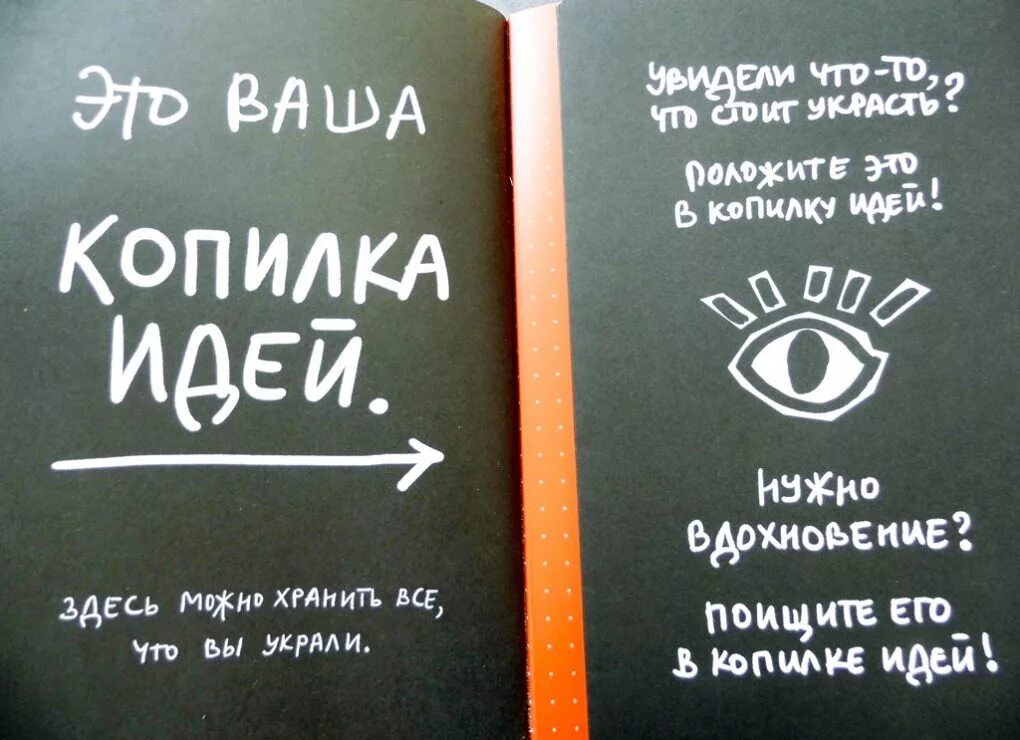 ЭТО ВАША
КОПИЛКА
ИДЕЙ.
ЗДЕСЬ МОЖНО ХРАНИТЬ ВСЕ,
ЧТО ВЫ УКРАЛИ.
УВИДЕЛИ ЧТО-ТО,
ЧТО СТОИТ УКРАСТЬ?
ПОЛОЖИТЕ ЭТО
В КОПИЛКУ ИДЕЙ!
НУЖНО
ВДОХНОВЕНИЕ?
ПОИЩИТЕ ЕГО
В КОПИЛКЕ ИДЕЙ!